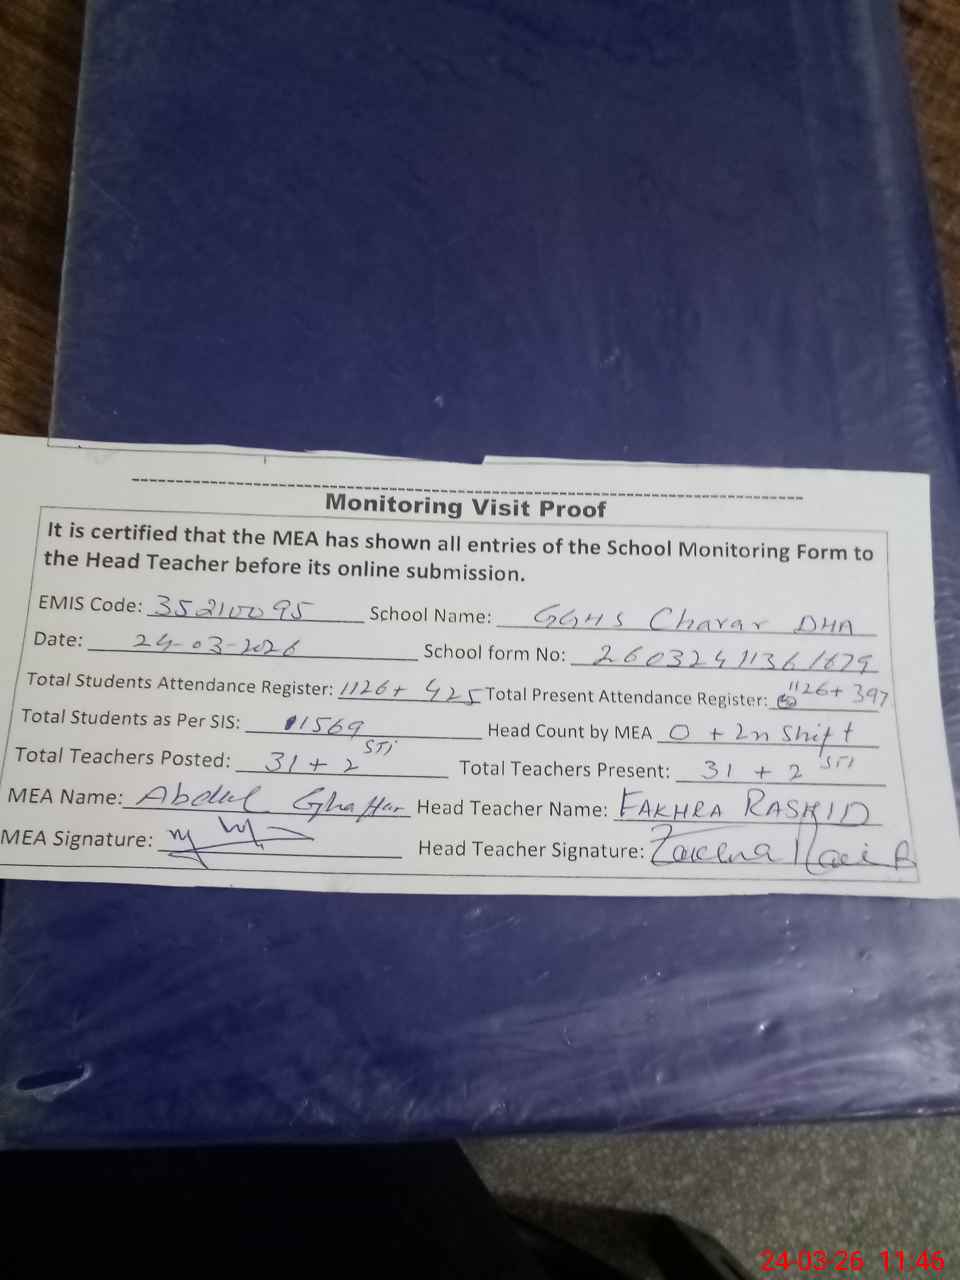 Monitoring Visit Proof
It is certified that the MEA has shown all entries of the School Monitoring Form to
the Head Teacher before its online submission.
EMIS Code: 35210095 School Name: GGHS Charar DHA
Date: 24-03-2026 School form No: 26032411361679
Total Students Attendance Register: 1126+ 425 Total Present Attendance Register: 1126+ 397
Total Students as Per SIS: 1569 Head Count by MEA 0 + 2n Shift
Total Teachers Posted: 31 + 2 STI Total Teachers Present: 31 + 2 STI
MEA Name: Abdul Ghaffar Head Teacher Name: FAKHRA RASHID
MEA Signature: Head Teacher Signature:
24-03-26 11:46